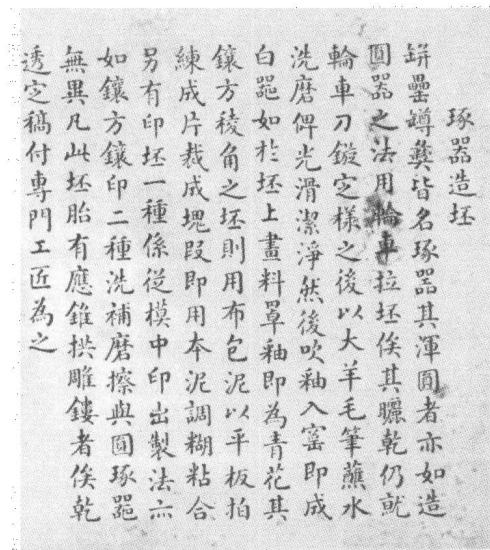 琢器造坯
缾罍罇彝皆名琢器其渾圓者亦如造
圓器之法用輪車拉坯俟其曬乾仍就
輪車刀鏇定樣之後以大羊毛筆蘸水
洗磨俾光滑潔淨然後吹釉入窰即成
白噐如於坯上畫料罩釉即為青花其
鑲方稜角之坯則用布包泥以平板拍
練成片裁成塊段即用本泥調糊粘合
另有印坯一種係從模中印出製法亦
如鑲方鑲印二種洗補磨擦與圓琢噐
無異凡此坯胎有應錐拱雕鏤者俟乾
透定稿付專門工匠為之